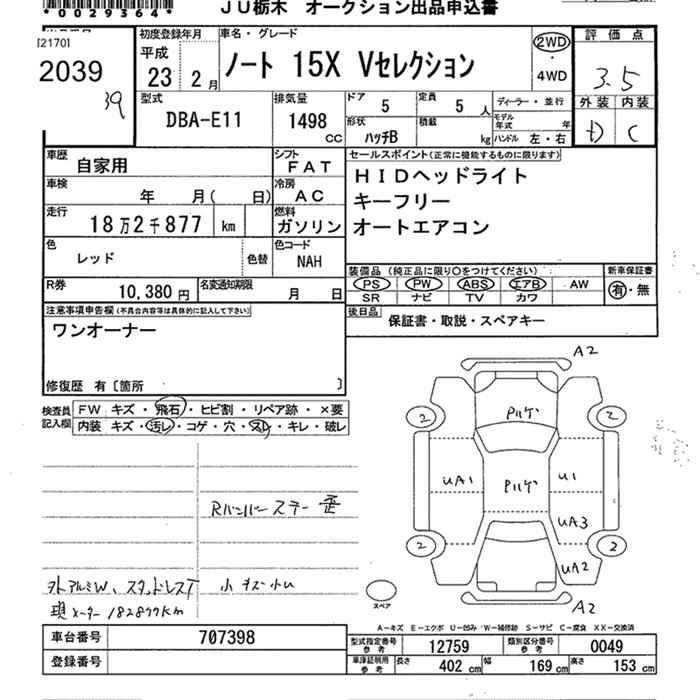 *0029364*
JU栃木 オークション出品申込書
[2170]
2039
39
初度登録年月
平成
23 2月
車名・グレード
ノート 15X Vセレクション
2WD
・
4WD
評価点
3.5
外装 内装
D C
型式
DBA-E11
排気量
1498
CC
ドア 5
定員 5 人
形状 ハッチB
積載 kg
ディーラー・並行
モデル年式 年
ハンドル 左・右
車歴 自家用
シフト FAT
車検 年 月( 日)
冷房 AC
走行 18万2千877 km
燃料 ガソリン
色 レッド
色替
色コード NAH
R券 10,380円
名変通知期限 月 日
セールスポイント(正常に機能するものに限ります)
HIDヘッドライト
キーフリー
オートエアコン
装備品(純正品に限り○をつけてください)
新車保証書
PS PW ABS エアB AW
有・無
SR ナビ TV カワ
後日品 保証書・取説・スペアキー
注意事項申告欄(不具合内容等は具体的に記入して下さい)
ワンオーナー
修復歴 有〔箇所 〕
検査員記入欄
FW キズ・飛石・ヒビ割・リペア跡・×要
内装 キズ・汚レ・コゲ・穴・スレ・キレ・破レ
Rバンパーステー歪
外アルミW、スタッドレスT 小キズ小U
現メーター182877km
A2
2
2
PルゲUA1
Pルゲ
U1
UA3
2
2
UA2
A2
スペア
A-キズ E-エクボ U-凹み W-補修跡 S-サビ C-腐食 XX-交換済
車台番号 707398
登録番号
型式指定番号参考 12759
類別区分番号参考 0049
車庫証明用参考 長さ 402 cm 幅 169 cm 高さ 153 cm